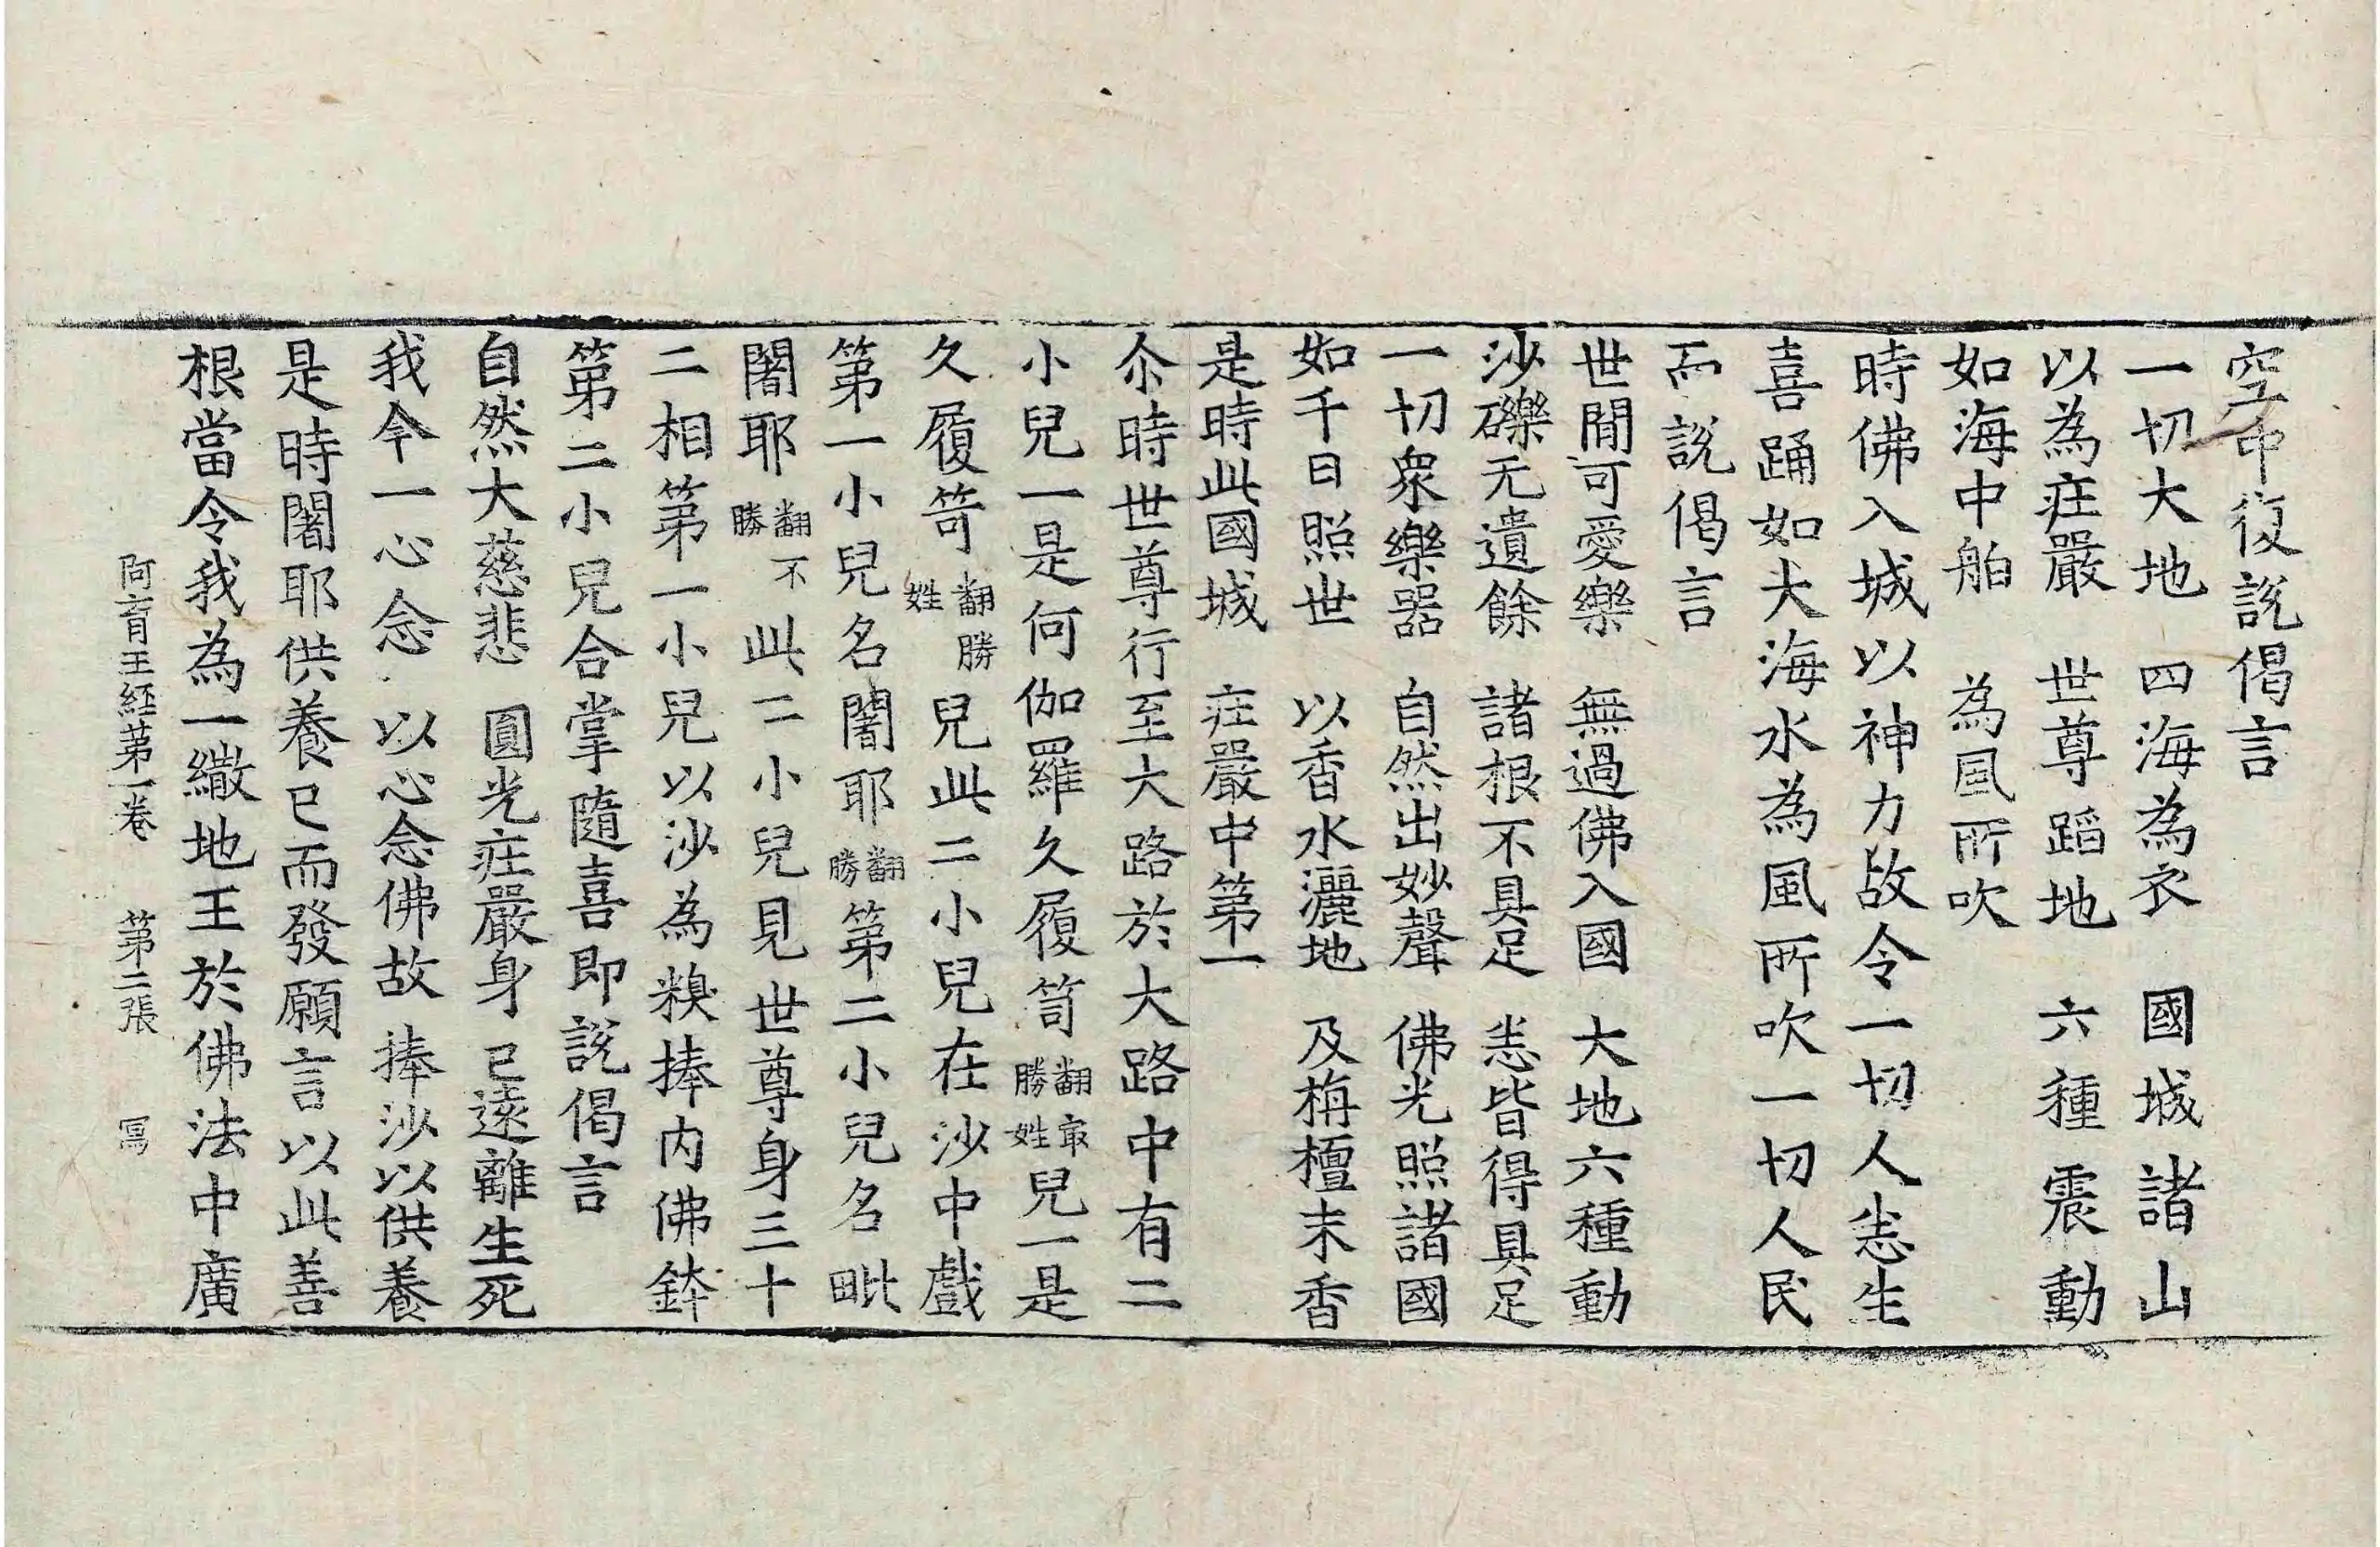 空中復說偈言
一切大地　四海為衣　國城諸山
以為庄嚴　世尊蹈地　六種震動
如海中舶　為風所吹
時佛入城以神力故令一切人恙生
喜踊如大海水為風所吹一切人民
而說偈言
世間可愛樂　無過佛入國　大地六種動
沙礫无遺餘　諸根不具足　恙皆得具足
一切衆樂器　自然出妙聲　佛光照諸國
如千日照世　以香水灑地　及栴檀末香
是時此國城　庄嚴中第一
尒時世尊行至大路於大路中有二
小兒一是何伽羅久履笥翻冣勝姓兒一是
久履笴翻勝姓兒此二小兒在沙中戲
第一小兒名闍耶翻勝第二小兒名毗
闍耶翻不勝此二小兒見世尊身三十
二相第一小兒以沙為糗捧内佛鉢
第二小兒合掌隨喜即說偈言
自然大慈悲　圓光庄嚴身　已遠離生死
我今一心念　以心念佛故　捧沙以供養
是時闍耶供養已而發願言以此善
根當令我為一繖地王於佛法中廣
阿育王経第一卷　第二張　冩